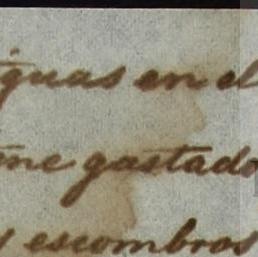 iguas en el
me gastado
y escombros